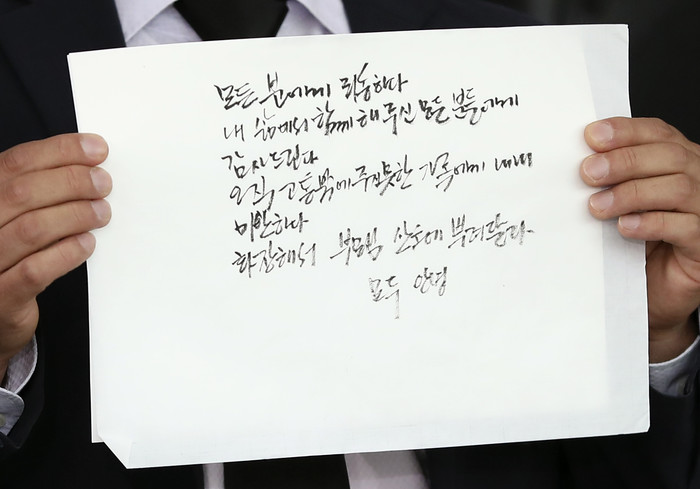 모든 분에게 죄송하다
내 삶에서 함께 해주신 모든 분들에게
감사드린다
오직 고통밖에 주지못한 가족에게 내내
미안하다
화장해서 부모님 산소에 뿌려달라.
모두 안녕